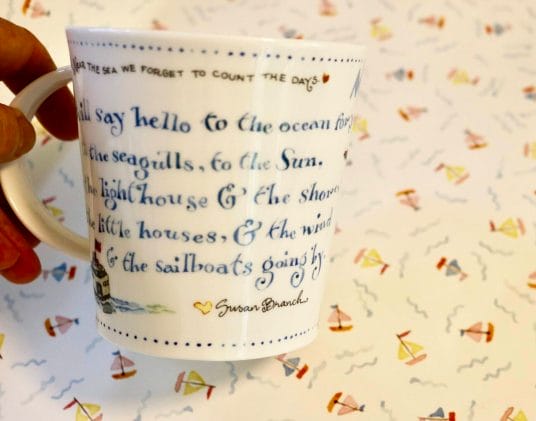 NEAR THE SEA WE FORGET TO COUNT THE DAYS.
say hello to the ocean for
the seagulls, to the Sun.
the lighthouse & the shore
the little houses, & the wind
& the sailboats going by.
Susan Branch